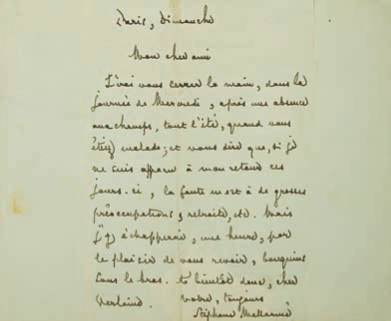 Paris, Dimanche
Mon cher ami
J'irai vous serrer la main, dans la
journée de Mercredi, après une absence
aux champs, tout l'été, quand vous
étiez malade; et vous dire que, si je
ne suis apparu à mon retour ces
jours-ci, la faute en est à de grosses
préoccupations, retraite, etc. Mais
j'y échapperai, une heure, par
le plaisir de vous revoir, bouquins
sous le bras. à bientôt donc, cher
Verlaine. Votre, toujours
Stéphane Mallarmé